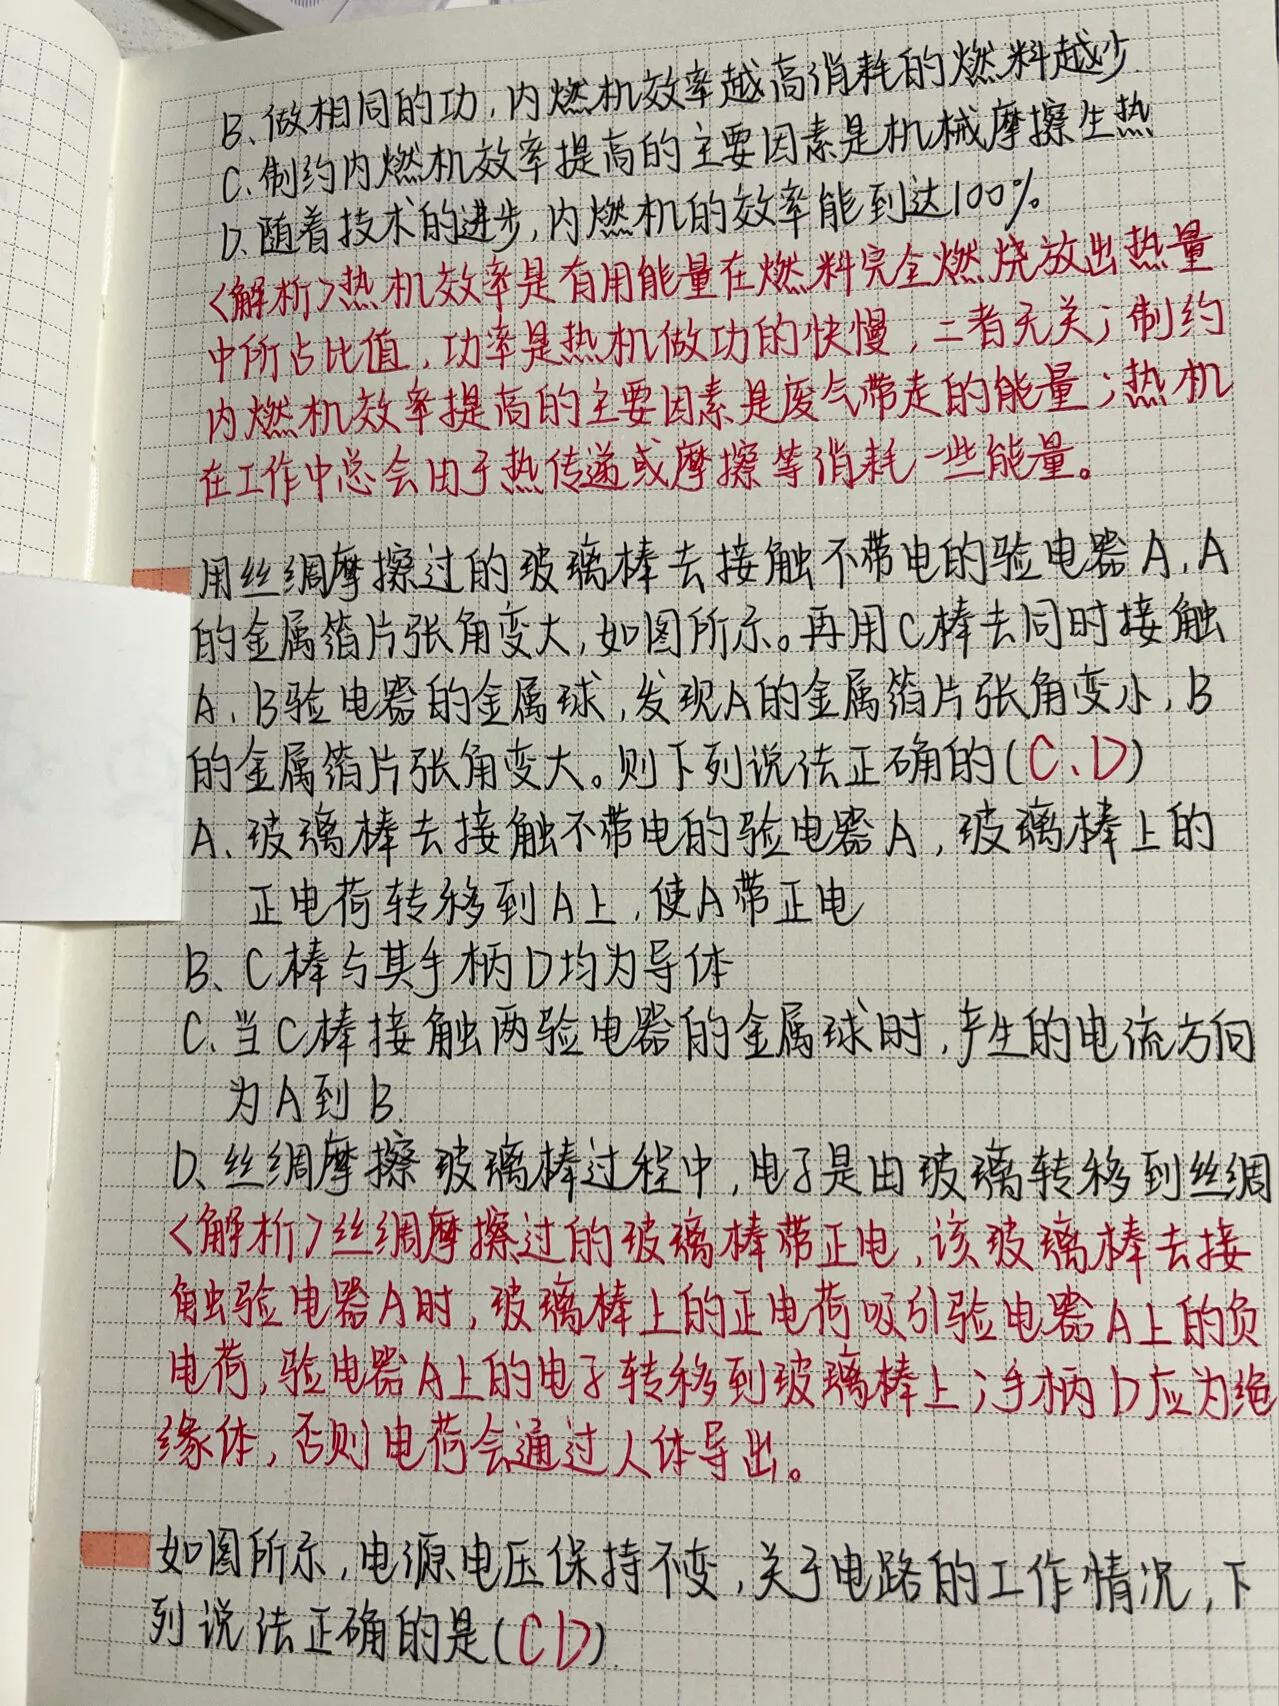 B、做相同的功，内燃机效率越高消耗的燃料越少
C、制约内燃机效率提高的主要因素是机械摩擦生热
D、随着技术的进步，内燃机的效率能到达100%。
<解析>热机效率是有用能量在燃料完全燃烧放出热量
中所占比值，功率是热机做功的快慢，二者无关；制约
内燃机效率提高的主要因素是废气带走的能量；热机
在工作中总会由于热传递或摩擦等消耗一些能量。
用丝绸摩擦过的玻璃棒去接触不带电的验电器A，A
的金属箔片张角变大，如图所示。再用C棒去同时接触
A、B验电器的金属球，发现A的金属箔片张角变小，B
的金属箔片张角变大。则下列说法正确的(C、D)
A、玻璃棒去接触不带电的验电器A，玻璃棒上的
正电荷转移到A上，使A带正电
B、C棒与其手柄D均为导体
C、当C棒接触两验电器的金属球时，产生的电流方向
为A到B
D、丝绸摩擦玻璃棒过程中，电子是由玻璃转移到丝绸
<解析>丝绸摩擦过的玻璃棒带正电，该玻璃棒去接
触验电器A时，玻璃棒上的正电荷吸引验电器A上的负
电荷，验电器A上的电子转移到玻璃棒上；手柄D应为绝
缘体，否则电荷会通过人体导出。
如图所示，电源电压保持不变，关于电路的工作情况，下
列说法正确的是(CD)